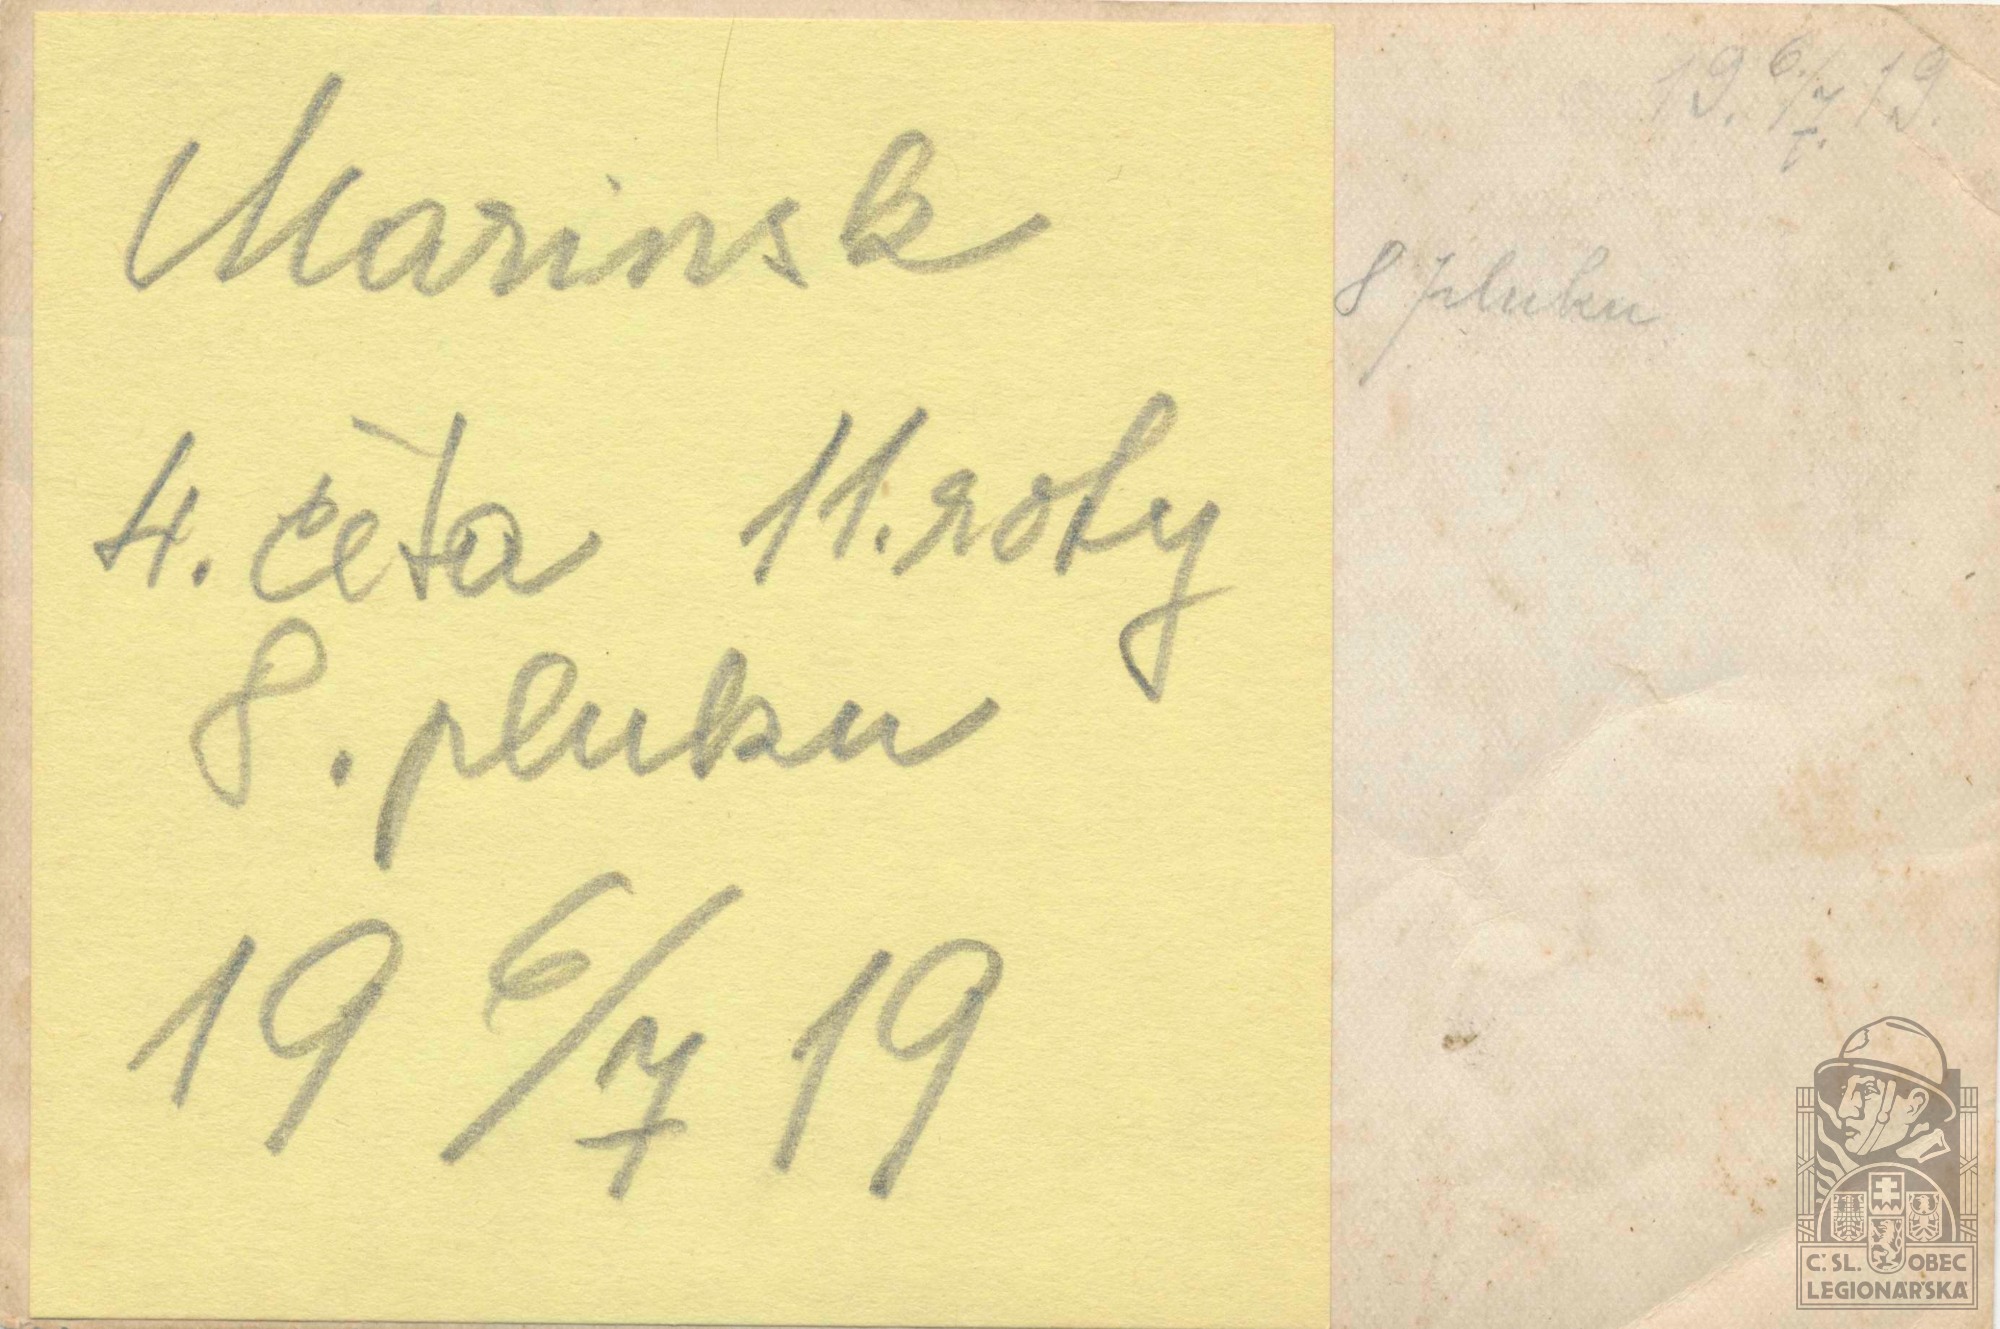 Marinsk
4. četa 11. roty
8. pluku
19 6/7 19
19. 6./7. 19.
8 pluku
Č.SL. OBEC
LEGIONÁŘSKÁ